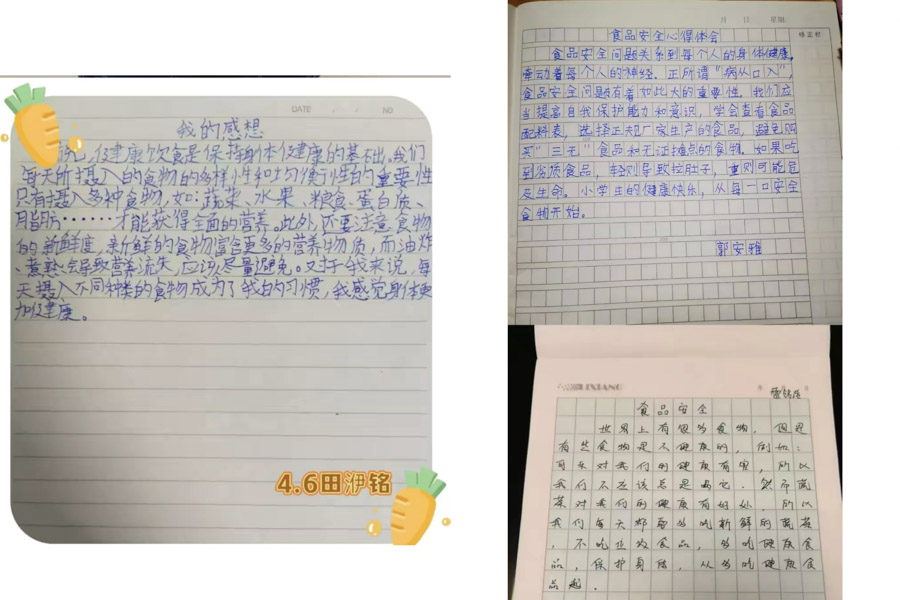 DATE NO
我的感想
健康饮食是保持身体健康的基础。我们
每天所摄入的食物的多样性和均衡性的重要性
只有摄入多种食物,如:蔬菜、水果、粮食、蛋白质、
脂肪……才能获得全面的营养。此外,还要注意食物
的新鲜度,新鲜的食物富含更多的营养物质,而油炸
、煮熟会导致营养流失,应该尽量避免。对于我来说,每
天摄入不同种类的食物成为了我的习惯,我感觉身体更
加健康。
4.6田洢铭
月 日 星期
食品安全心得体会
食品安全问题关系到每个人的身体健康,
牵动着每个人的神经。正所谓"病从口入",
食品安全问题有着如此大的重要性,我们应
当提高自我保护能力和意识,学会查看食品
配料表,选择正规厂家生产的食品,避免购
买"三无"食品和无证摊点的食物。如果吃
到劣质食品,轻则导致拉肚子,重则可能危
及生命。小学生的健康快乐,从每一口安全
食物开始。
郭安雅
食品安全
世界上有很多食物,但是
有些食物是不健康的,例如:
可乐对我们的健康有害,所以
我们不应该总是喝它。然而蔬
菜对我们的健康有好处,所以
我们每天都要多吃新鲜的蔬菜
,不吃垃圾食品,多吃健康食
品,保护身体,从多吃健康食
品起。